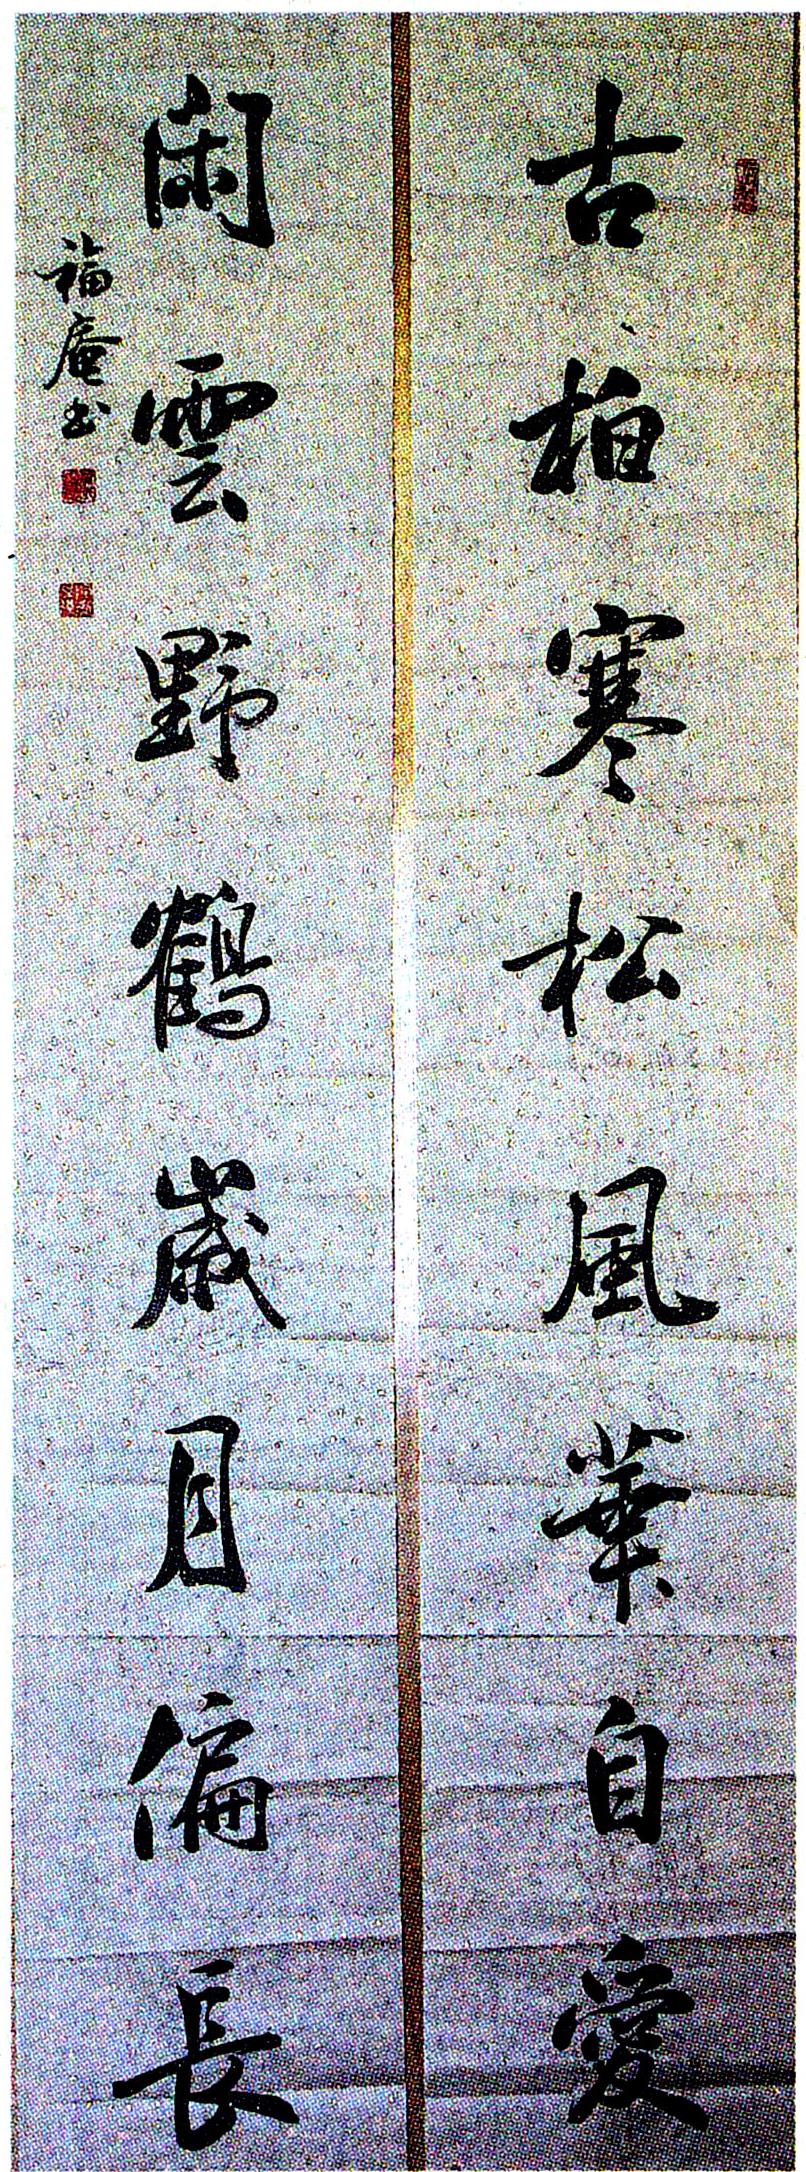 古柏寒松風華自愛
閑雲野鶴歲月偏長
福庵書